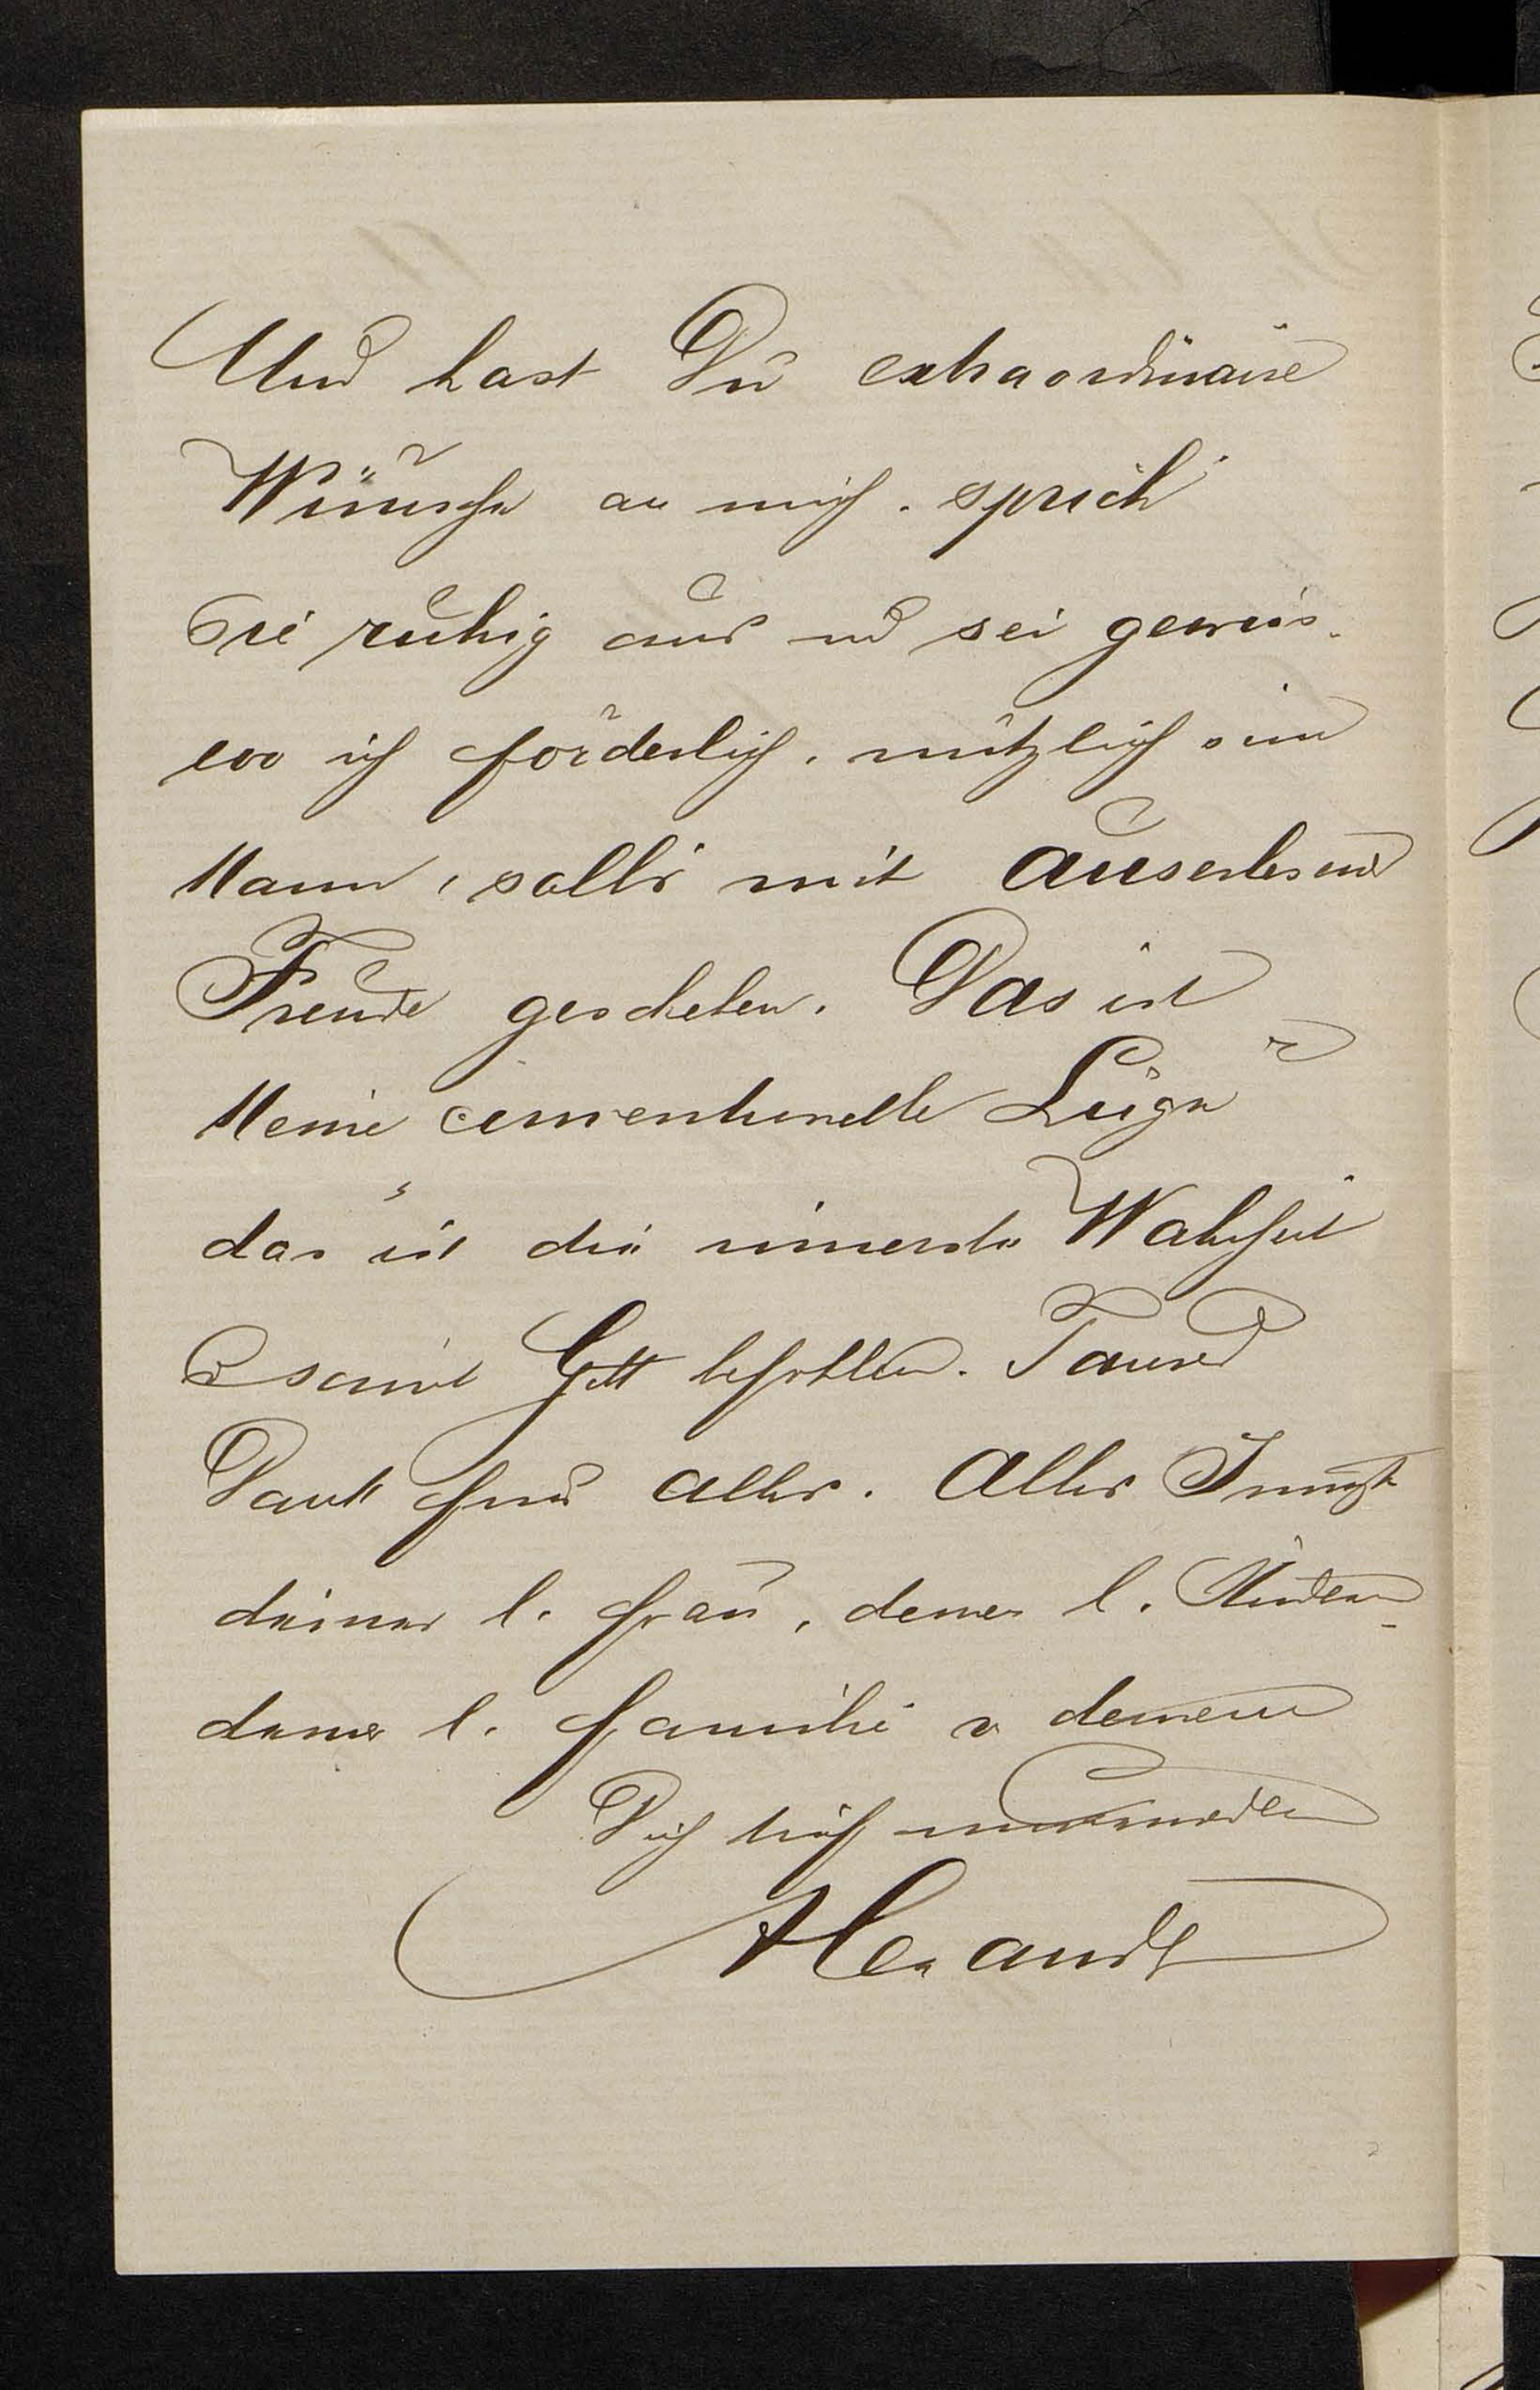 Und hast Du extraordinaire
Wünsche an mich. sprich
Sie ruhig aus und sei gewiss.
wo ich förderlich. nützlich sein
kann, solls mit auserlesener
Freude geschehen. Das ist
keine conventionelle Lüge
das ist die innerste Wahrheit
Und somit Gott befohlen. Tausend
Dank für alles. Alles Innigste
deiner l. Frau, deinen l. Kindern
deiner l. Familie v deinem
Dich hoch